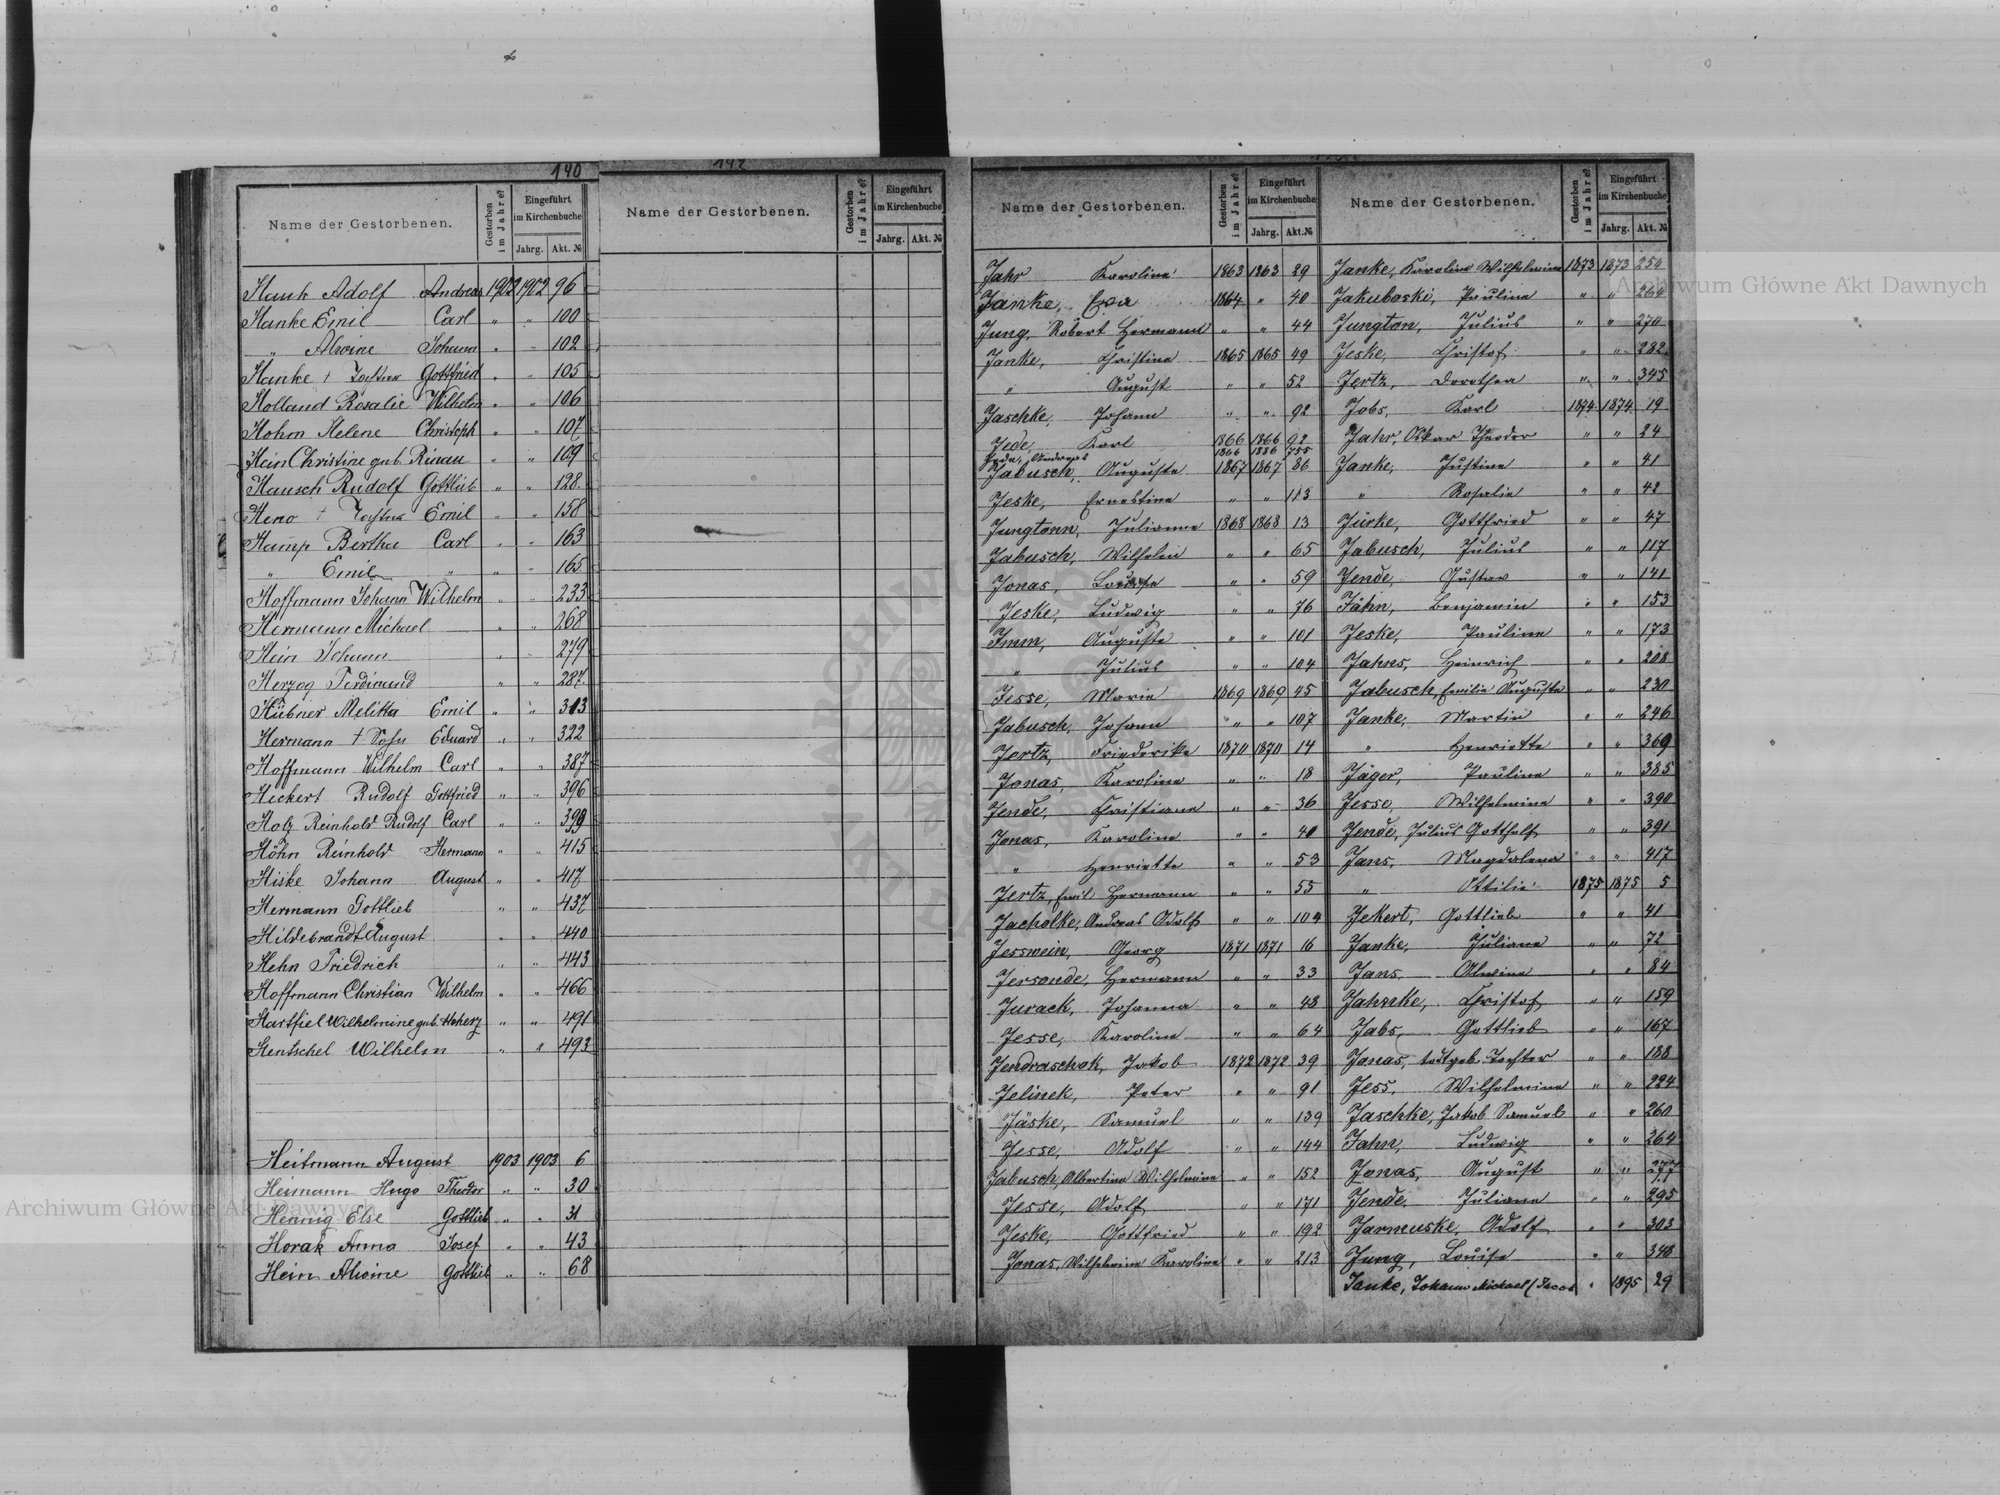 140
Name der Gestorbenen. Gestorben im Jahre? Eingeführt im Kirchenbuche Jahrg. Akt. №
Hauh Adolf Andreas 1902 1902 96
Hanke Emil Carl " " 100
" Alwine Johann " " 102
Hanke † Tochter Gottfried " " 105
Holland Rosalie Wilhelm " " 106
Hohm Helene Christoph " " 107
Hein Christine geb. Rinau " " 109
Hausch Rudolf Gottlieb " " 128
Heno † Tochter Emil " " 158
Hamp Bertha Carl " " 163
" Emil " " " 165
Hoffmann Johann Wilhelm " " 233
Hermann Michael " " 268
Hein Johann " " 279
Herzog Ferdinand " " 287
Hübner Melitta Emil " " 313
Hermann † Sohn Eduard " " 322
Hoffmann Wilhelm Carl " " 387
Heckert Rudolf Gottfried " " 396
Holz Reinhold Rudolf Carl " " 399
Höhn Reinhold Hermann " " 415
Hiske Johann August " " 417
Hermann Gottlieb " " 437
Hildebrandt August " " 440
Hehn Friedrich " " 443
Hoffmann Christian Wilhelm " " 466
Hartfiel Wilhelmine geb. Hoherz " " 491
Hentschel Wilhelm " " 493
Heitmann August 1903 1903 6
Heimann Hugo Theodor " " 30
Hennig Else Gottlieb " " 31
Horak Anna Josef " " 43
Hein Alwine Gottlieb " " 68
142
Name der Gestorbenen. Gestorben im Jahre? Eingeführt im Kirchenbuche Jahrg. Akt. №
Name der Gestorbenen. Gestorben im Jahre? Eingeführt im Kirchenbuche Jahrg. Akt. №
Jahr Karoline 1863 1863 29
Janke, Eva 1864 " 40
Jung, Robert Hermann " " 44
Janke, Christine 1865 1865 49
" August " " 52
Jaschke, Johann " " 92
Jede, Karl 1866 1866 92
Jede, Andreas 1866 1886 755
Jabusch, Auguste 1867 1867 86
Jeske, Ernestine " " 113
Jungtonn, Julianne 1868 1868 13
Jabusch, Wilhelm " " 65
Jonas, Louise " " 59
Jeske, Ludwig " " 76
Imm, Auguste " " 101
" Julius " " 104
Jesse, Marie 1869 1869 45
Jabusch, Johann " " 107
Jertz, Friederike 1870 1870 14
Jonas, Karoline " " 18
Jende, Christiane " " 36
Jonas, Karoline " " 40
" Henriette " " 53
Jertz, Emil Hermann " " 55
Jacholke, Andreas Adolf " " 104
Jesswein, Georg 1871 1871 16
Jersonde, Hermann " " 33
Jurack, Johanna " " 48
Jesse, Karoline " " 64
Jendraschok, Jakob 1872 1872 39
Jelinek, Peter " " 91
Jäske, Samuel " " 139
Jesse, Adolf " " 144
Jabusch, Albertine Wilhelmine " " 152
Jesse, Adolf " " 171
Jeske, Gottfried " " 192
Jonas, Wilhelmine Karoline " " 213
Name der Gestorbenen. Gestorben im Jahre? Eingeführt im Kirchenbuche Jahrg. Akt. №
Janke, Karoline Wilhelmine 1873 1873 254
Jakuboski, Pauline " " 264
Jungton, Julius " " 270
Jeske, Christof " " 282
Jertz, Dorothea " " 345
Jobs, Karl 1874 1874 19
Jahr, Oskar Theodor " " 24
Janke, Justine " " 41
" Rosalie " " 42
Jürke, Gottfried " " 47
Jabusch, Julius " " 117
Jende, Gustav " " 141
Jähn, Benjamin " " 153
Jeske, Pauline " " 173
Jahns, Heinrich " " 208
Jabusch, Emilie Auguste " " 230
Janke, Martin " " 246
" Henriette " " 369
Jäger, Pauline " " 385
Jesse, Wilhelmine " " 390
Jende, Julius Gotthelf " " 391
Jans, Magdalena " " 417
" Ottilie 1875 1875 5
Jekert, Gottlieb " " 41
Janke, Juliane " " 72
Jans, Alwine " " 84
Jahnke, Christof " " 159
Jabs, Gottlieb " " 167
Jonas, todtgeb. Tochter " " 188
Jess, Wilhelmine " " 224
Jaschke, Jakob Samuel " " 260
Jahn, Ludwig " " 264
Jonas, August " " 277
Jende, Juliane " " 295
Jarmuske, Adolf " " 303
Jung, Louise " " 348
Janke, Johann Michael / Jacob " 1895 29
Archiwum Główne Akt Dawnych
Archiwum Główne Akt Dawnych